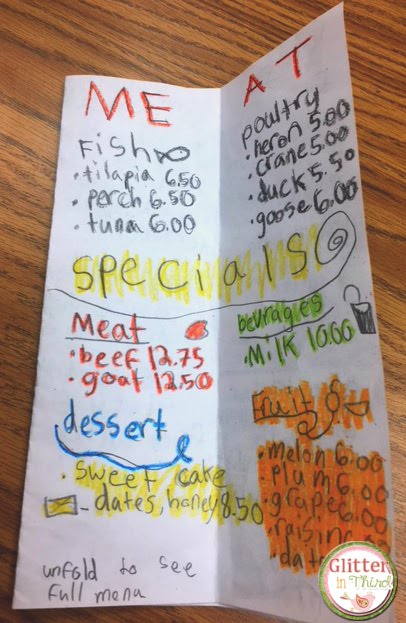 ME AT
fish
• tilapia 6.50
• perch 6.50
• tuna 6.00
poultry
• heron 5.00
• crane 5.00
• duck 5.50
• goose 6.00
specials
Meat
• beef 12.75
• goat 12.50
bevragies
• Milk 10.00
dessert
• sweet cake
- dates, honey 8.50
Fruit
• melon 6.00
• plum 6.00
• grape 6.00
unfold to see
full menu
Glitter
in Third